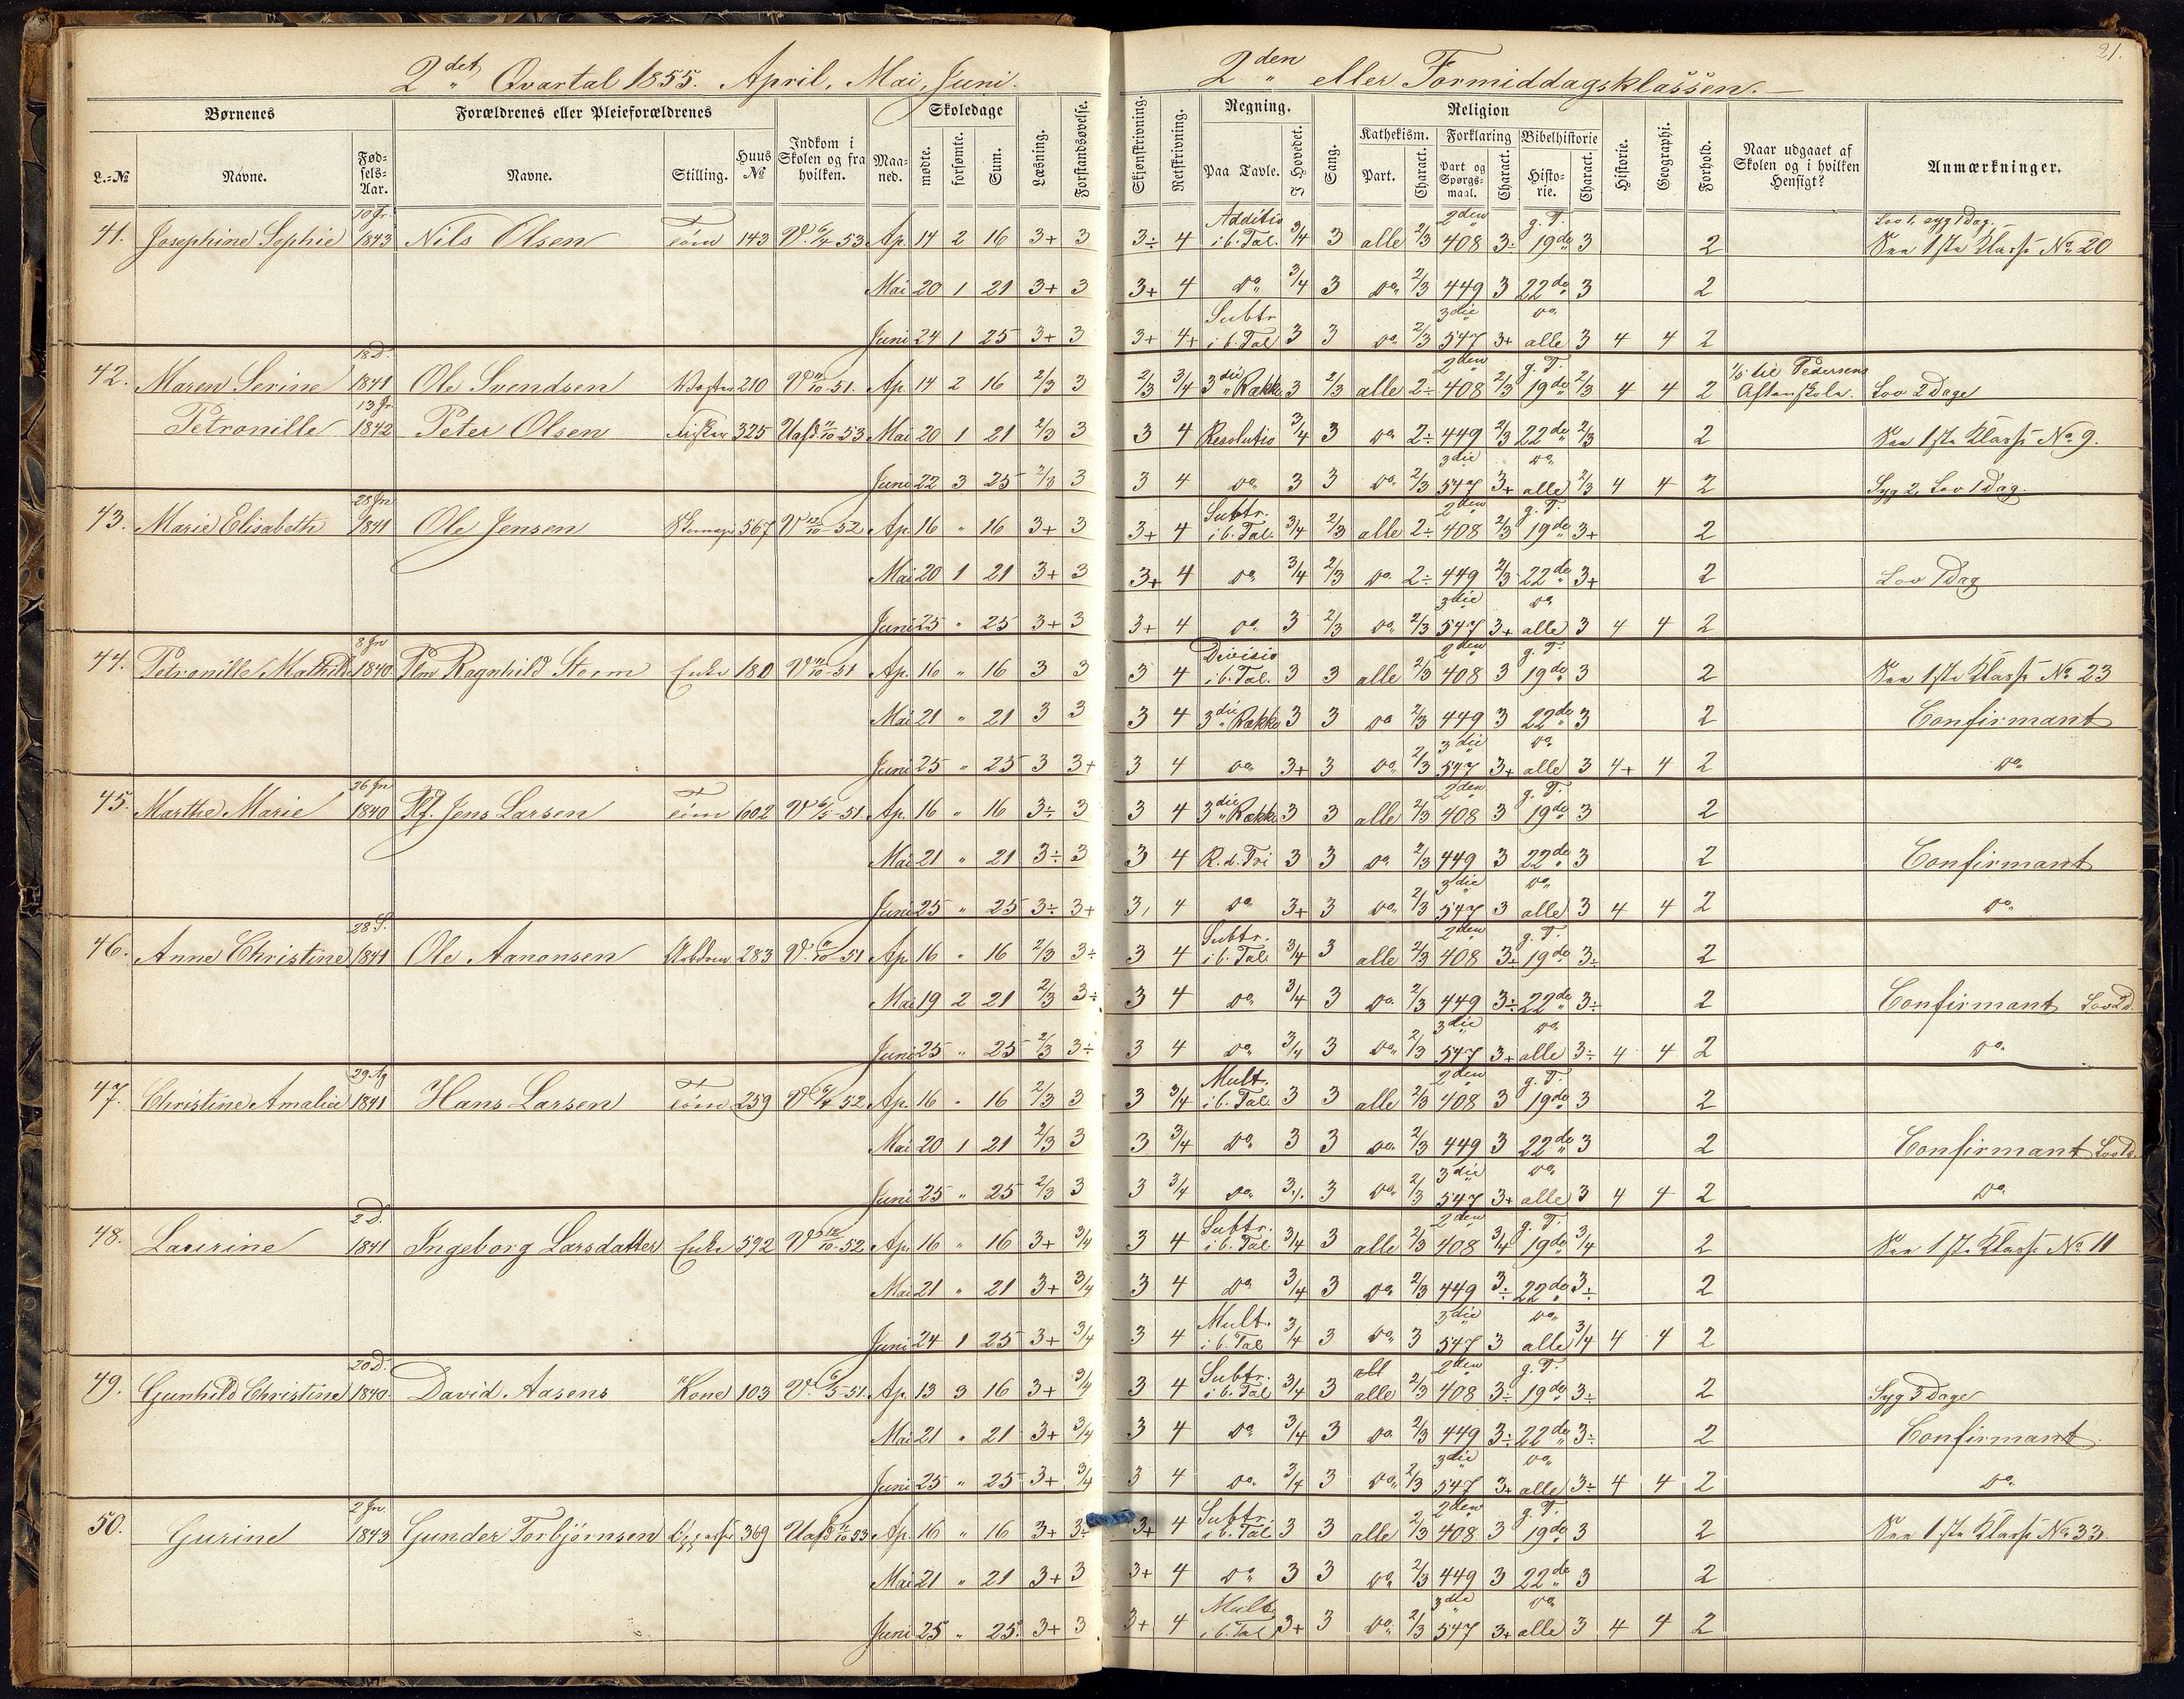 21.
2det Qvartal 1855. April, Mai, Juni.
2den eller Formiddagsklassen.
Børnenes
Forældrenes eller Pleieforældrenes
Skoledage
Regning.
Religion
Kathekism. Forklaring Bibelhistorie
L.-No Navne. Fød-sels-Aar. Navne. Stilling. Huus No Indkom i Skolen og fra hvilken. Maa-ned. mødte. forsømte. Sum. Læsning. Forstandsøvelse.
Skjønskrivning. Retskrivning. Paa Tavle. I Hovedet. Sang. Part. Charact. Part og Spørgs-maal. Charact. Histo-rie. Charact. Historie. Geographi. Forhold. Naar udgaaet af Skolen og i hvilken Hensigt? Anmærkninger.
41. Josephine Sophie 10 Jr. 1843 Nils Olsen Tøm 143 V. 6/4 53 Ap. 14 2 16 3+ 3
3÷ 4 Additio i b. Tal. 3/4 3 alle 2/3 2den 408 3÷ g. T. 19de 3 2 Lov 1, syg 1 Dag. 1ste Klasse No 20
Mai 20 1 21 3+ 3
3+ 4 do 3/4 3 do 2/3 449 3 22de 3 2
Juni 24 1 25 3+ 3
3+ 4+ Subtr i b. Tal 3 3 do 2/3 3die 547 3+ do alle 3 4 4 2
42. Maren Serine 18 D. 1841 Ole Svendsen 210 V 11/10-51. Ap. 14 2 16 2/3 3
2/3 3/4 3die Række 3 2/3 alle 2÷ 2den 408 2/3 g. T. 19de 2/3 4 4 2 til Pedersens Aftenskole. Lov 2 Dage
Petronille 13 Jr. 1842 Peter Olsen Fisker 325 Uafd. 11/10-53 Mai 20 1 21 2/3 3
3 4 Resolutio 3/4 3 do 2÷ 449 2/3 22de 2/3 2 1ste Klasse No 9.
Juni 22 3 25 2/3 3
3 4 do 3 3 do 2/3 3die 547 3+ do alle 2/3 4 4 2 Syg 2, Lov 1 Dag.
43. Marie Elisabeth 28 Jn 1841 Ole Jensen 567 V 12/10-52 Ap 16 " 16 3+ 3
3+ 4 Subtr. i b. Tal. 3/4 2/3 alle 2÷ 2den 408 2/3 g. T. 19de 3+ 2
Mai 20 1 21 3+ 3
3+ 4 do 3/4 2/3 do 2÷ 449 2/3 22de 3+ 2 Lov 1 Dag
Juni 25 " 25 3+ 3
3+ 4 do 3 2/3 do 2/3 3die 547 3+ do alle 3 4 4 2
44. Petronille Mathilde 8 Jn 1840 Plm Ragnhild Storm Enke 180 V 11/10-51 Ap. 16 " 16 3 3
3 4 Divisio i b. Tal. 3 3 alle 2/3 2den 408 3 g. T. 19de 3 2 1ste Klasse No 23
Mai 21 " 21 3 3
3 4 3die Række 3 3 do 2/3 449 3 22de 3 2 Confirmant
Juni 25 " 25 3 3+
3 4 do 3+ 3 do 2/3 3die 547 3+ do alle 3 4+ 4 2 do
45. Marthe Marie 26 Jn 1840 Plf. Jens Larsen Tøm 602 V 6/5-51. Ap. 16 " 16 3÷ 3
3 4 3die Række 3 3 alle 2/3 2den 408 3 g. T. 19de 3 2
Mai 21 " 21 3÷ 3
3 4 R. d. Tri 3 3 do 2/3 449 3 22de 3 2 Confirmant
Juni 25 " 25 3÷ 3+
3, 4 do 3+ 3 do 2/3 3die 547 3 do alle 3 4 4 2 do
46. Anne Christine 28 S. 1841 Ole Aanonsen 283 V. 11/10-51 Ap. 16 " 16 2/3 3÷
3 4 Subtr. i b. Tal 3/4 3 alle 2/3 2den 408 3÷ g. T. 19de 3÷ 2
Mai 19 2 21 2/3 3÷
3 4 do 3/4 3 do 2/3 449 3÷ 22de 3÷ 2 Confirmant Lov 2 D.
Juni 25 " 25 2/3 3÷
3 4 do 3/4 3 do 2/3 3die 547 3+ do alle 3÷ 4 4 2 do
47. Christine Amalie 29 Ag 1841 Hans Larsen Tøm 259 V 6/4 52 Ap. 16 " 16 2/3 3
3 3/4 Mult. i b. Tal. 3 3 alle 2/3 2den 408 3 g. T. 19de 3 2
Mai 20 1 21 2/3 3
3 3/4 do 3 3 do 2/3 449 3 22de 3 2 Confirmant
Juni 25 " 25 2/3 3
3 3/4 do 3 do 2/3 3die 547 3+ do alle 3 4 4 2 do
48. Laurine 2 D. 1841 Ingeborg Larsdatter Enke 592 V 12/10-52 Ap 16 " 16 3+ 3/4
3 4 Subtr. i b. Tal 3/4 3 alle 2/3 2den 408 3/4 g. T. 19de 3/4 2 1ste Klasse No 11
Mai 21 " 21 3+ 3/4
3 4 do 3/4 3 do 2/3 449 3÷ 22de 3÷ 2
Juni 24 1 25 3+ 3/4
3 4 Mult. i b. Tal 3/4 3 do 3 3die 547 3 do alle 3/4 4 4 2
49. Gunhild Christine 20 D. 1840. David Aasens Kone 103 V. 6/5-51. Ap. 13 3 16 3+ 3/4
3 4 Subtr. i b. Tal 3/4 3 alle 2/3 2den 408 3÷ g. T. 19de 3÷ 2 Syg 3 Dage
Mai 21 " 21 3+ 3/4
3 4 do 3/4 3 do 2/3 449 3÷ 22de 3÷ 2 Confirmant
Juni 25 " 25 3+ 3/4
3 4 do 3/4 3 do 2/3 3die 547 3+ do alle 3÷ 4 4 2 do
50. Gurine 2 Jn. 1843 Gunder Torbjørnsen 369 Uafd. 11/10 53 Ap. 16 " 16 3+ 3÷
3+ 4 Subtr. i b. Tal 3 3 alle 2/3 2den 408 3 g. T. 19de 3 2 1ste Klasse No 33.
Mai 21 " 21 3+ 3
3+ 4 do 3 3 do 2/3 449 3 22de 3 2
Juni 25 " 25 3+ 3
3+ 4 Mult. i b. Tal 3+ 3 do 2/3 3die 547 3+ do alle 3 4 4 2